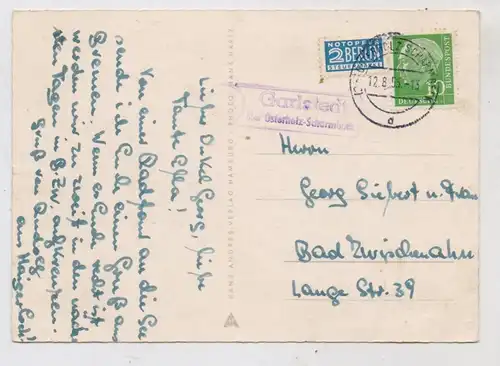 NOTOPFER
2 BERLIN
STEUERMARKE
DEUTSCHE
BUNDESPOST
10
12.8.
Garlstedt
über Osterholz-Scharmbeck
Herrn
Georg Siebert u. Frau
Bad Zwischenahn
Lange Str. 39
HANS ANDRES VERLAG HAMBURG
PHOTO HANS HARTZ
Lieber Onkel Georg, liebe
Tante
Von einer Radfahrt an die See
sende ich Euch einen Gruß aus
Bremen. Wenn es Euch recht ist
werden wir zu zweit in den
Tagen in B. Zw.
Gruß von
aus